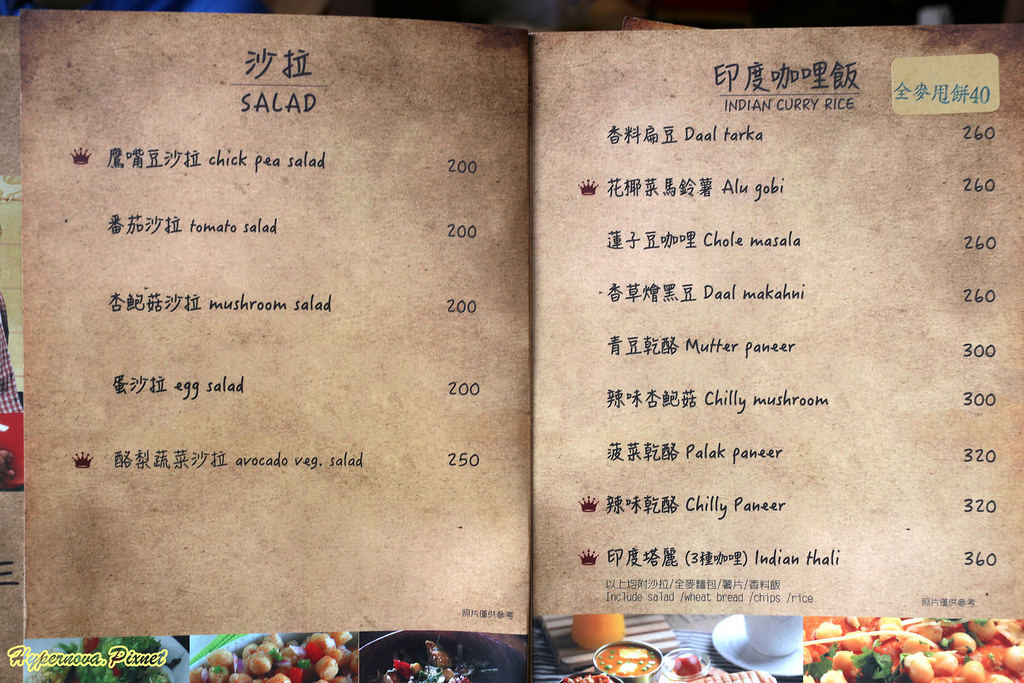 沙拉
SALAD
鷹嘴豆沙拉 chick pea salad 200
番茄沙拉 tomato salad 200
杏鮑菇沙拉 mushroom salad 200
蛋沙拉 egg salad 200
酪梨蔬菜沙拉 avocado veg. salad 250
照片僅供參考
印度咖哩飯
INDIAN CURRY RICE
全麥甩餅40
香料扁豆 Daal tarka 260
花椰菜馬鈴薯 Alu gobi 260
蓮子豆咖哩 Chole masala 260
香草燴黑豆 Daal makahni 260
青豆乾酪 Mutter paneer 300
辣味杏鮑菇 Chilly mushroom 300
菠菜乾酪 Palak paneer 320
辣味乾酪 Chilly Paneer 320
印度塔麗 (3種咖哩) Indian thali 360
以上均附沙拉/全麥麵包/薯片/香料飯
Include salad /wheat bread /chips /rice
照片僅供參考
Hypernova.Pixnet